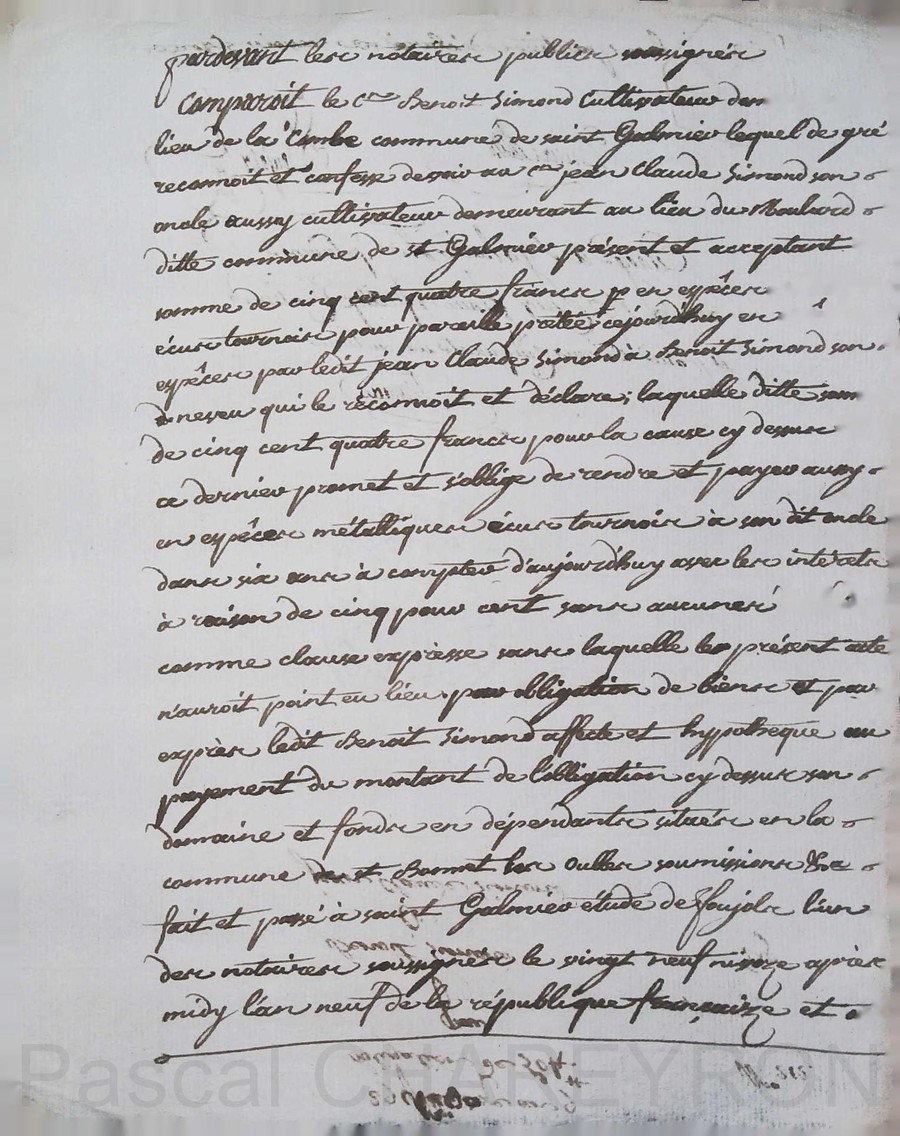 pardevant les notaires publics soussignés
Comparoit le c.en Benoit Simond Cultivateur du
lieu de la Combe commune de saint Galmier lequel de gré
reconnoit et confesse devoir au c.en jean Claude Simond son
oncle aussy cultivateur demeurant au lieu du
ditte commune de st Galmier présent et acceptant
somme de cinq cent quatre francs en espèces
écus tournois pour pareille prêtée cejourd'huy en
espèces par ledit jean Claude Simond à Benoit Simond son
neveu qui le réconnoit et déclare; laquelle ditte som
de cinq cent quatre francs pour la cause cy dessus
ce dernier promet et s'oblige de rendre et payer aussy
en espèces métalliques écus tournois à son dit oncle
dans six ans à compter d'aujourd'huy avec les intérets
à raison de cinq pour cent sans aucunes
comme clause expresse sans laquelle les présent acte
n'auroit point eu lieu. par obligation de biens et par
exprès ledit Benoit Simond affecte et hypothèque au
payement du montant de l'obligation cy dessus son
domaine et fonds en dépendants situés en la
commune de st Bonnet les Oulles soumissions &a
fait et passé à saint Galmier étude de foujols l'un
des notaires soussignés le vingt neuf nivoze après
midy l'an neuf de la république françaize et
Pascal CHAREYRON